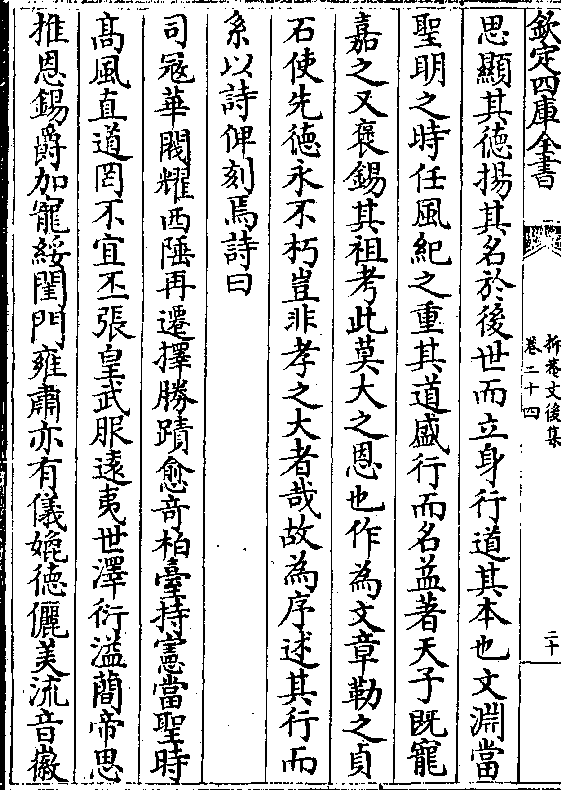 欽定四庫全書
抑菴文後集
卷二十四
二十
思顯其德揚其名於後世而立身行道其本也文淵當
聖明之時任風紀之重其道盛行而名益著天子既寵
嘉之又褒錫其祖考此莫大之恩也作為文章勒之貞
石使先德永不朽豈非孝之大者哉故為序述其行而
系以詩俾刻焉詩曰
司冦華閥耀西陲再遷擇勝蹟愈竒柏臺持憲當聖時
髙風直道罔不宜丕張皇武服逺夷世澤衍溢蕳帝思
推恩錫爵加寵綏閨門雍肅亦有儀媲德儷美流音徽